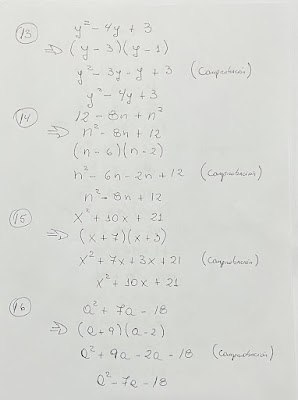 13 y² - 4y + 3
=> (y - 3)(y - 1)
y² - 3y - y + 3 (Comprobación)
y² - 4y + 3
14 12 - 8n + n²
=> n² - 8n + 12
(n - 6)(n - 2)
n² - 6n - 2n + 12 (Comprobación)
n² - 8n + 12
15 x² + 10x + 21
=> (x + 7)(x + 3)
x² + 7x + 3x + 21 (Comprobación)
x² + 10x + 21
16 a² + 7a - 18
=> (a + 9)(a - 2)
a² + 9a - 2a - 18 (Comprobación)
a² - 7a - 18